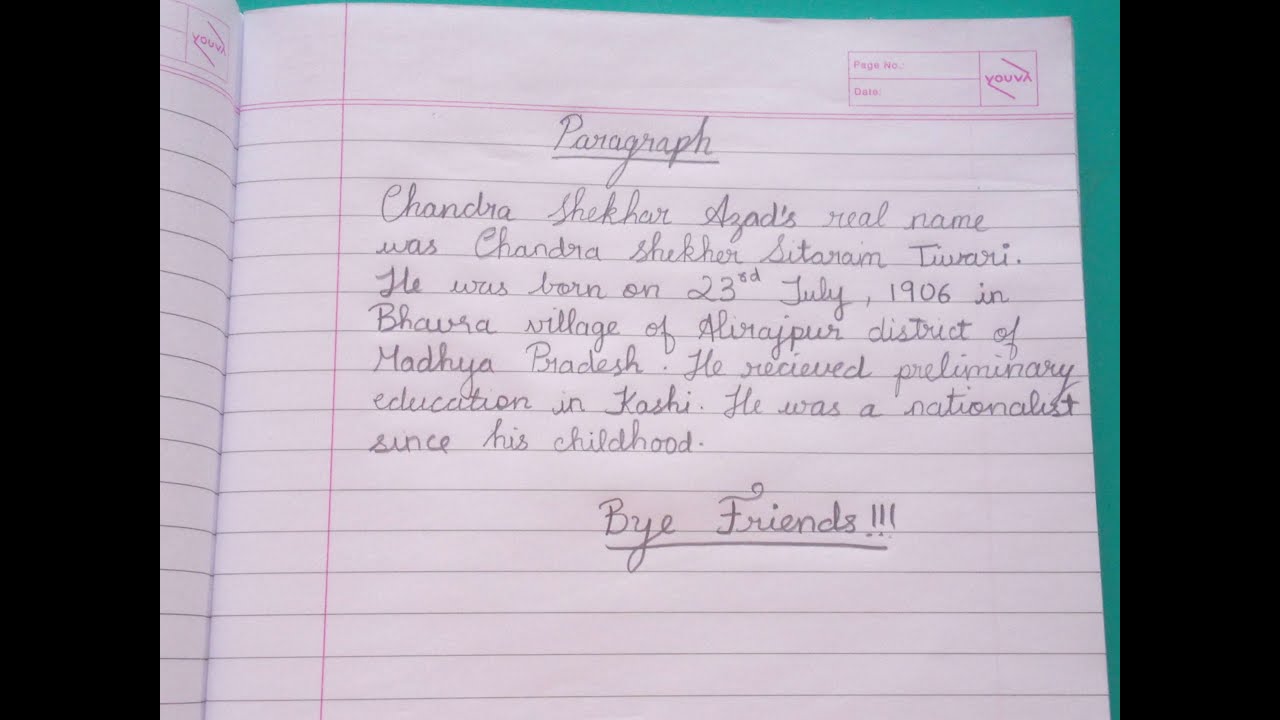 YOUVA
Page No.:
YOUVA
Date:
Paragraph
Chandra Shekhar Azad's real name
was Chandra Shekher Sitaram Tiwari.
He was born on 23rd July, 1906 in
Bhavra village of Alirajpur district of
Madhya Pradesh. He recieved preliminary
education in Kashi. He was a nationalist
since his childhood.
Bye Friends!!!